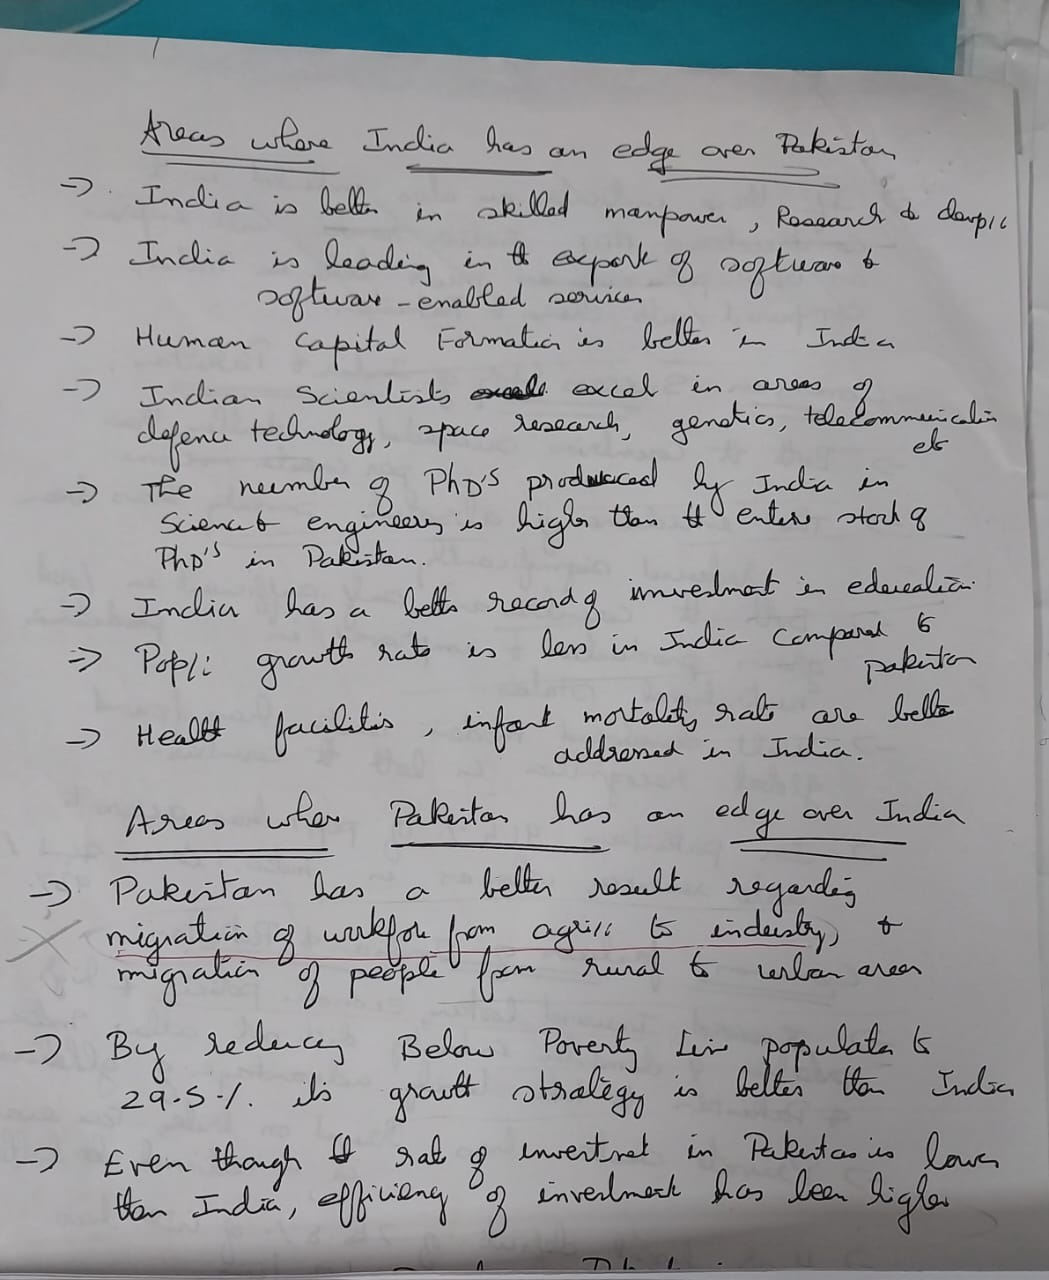 Areas where India has an edge over Pakistan
-> India is better in skilled manpower, Research &
-> India is leading in the export of software &
software-enabled services
-> Human Capital Formation is better in India
-> Indian Scientists excel in areas of
defence technology, space research, genetics, telecommunication
etc
-> The number of PhD's produced by India in
Science & engineering is higher than the entire stock of
PhD's in Pakistan.
-> India has a better record of investment in education.
=> Popl: growth rate is less in India Compared to
pakistan
-> Health facilities, infant mortality rate are better
addressed in India.
Areas where Pakistan has an edge over India
-> Pakistan has a better result regarding
migration of workforce from agri to industry, &
migration of people from rural to urban areas
-> By reducing Below Poverty Line population to
29.5 %. its growth strategy is better than India
-> Even though the rate of investment in Pakistan is lower
than India, efficiency of investment has been higher